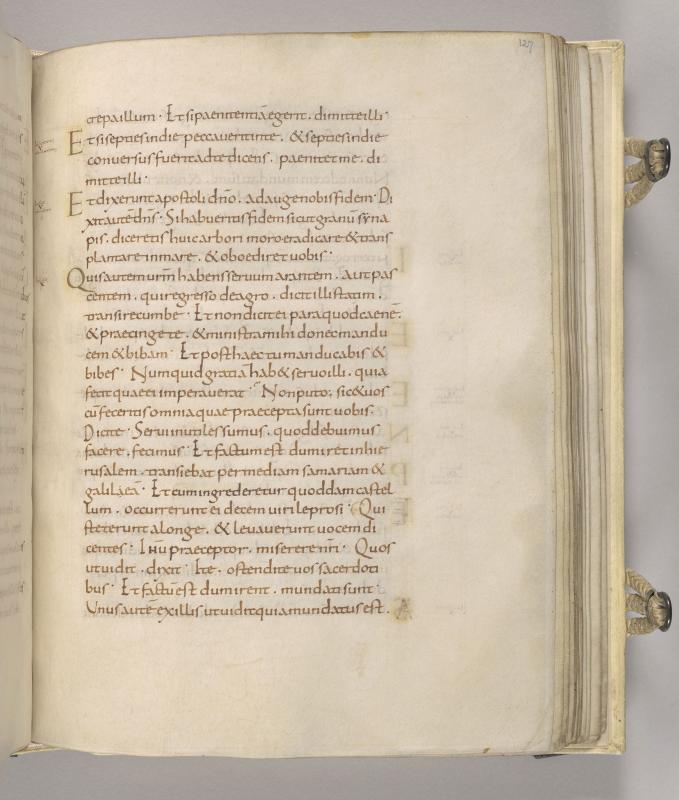 127
crepa illum · Et si paenitentiā egerit . dimitte illi ·
Et si septies in die peccaverit in te . & septies in die
conversus fuerit ad te dicens . paenitet me . di
mitte illi ·
Et dixerunt apostoli dño . adauge nobis fidem · Di
xit autē dñs · Si habueritis fidem sicut granū syna
pis . diceretis huic arbori moro eradicare & trans
plantare in mare . & oboediret uobis ·
Quis autem urm̄ habens seruum arantem . aut pas
centem . qui regresso de agro . dicit illi statim .
transi recumbe · Et non dicit ei para quod caenē .
& praecinge te . & ministra mihi donec mandu
cem & bibam · Et post haec tu manducabis &
bibes · Numquid gratiā hab& seruo illi . quia
fecit quae ei imperauerat · Non puto ; sic & uos
cū feceritis omnia quae praecepta sunt uobis ·
Dicite · Serui inutiles sumus . quod debuimus
facere . fecimus · Et factum est dum iret in hie
rusalem . transiebat per mediam samariam &
galilaeā · Et cum ingrederetur quoddam castel
lum . occurrerunt ei decem uiri leprosi · Qui
steterunt a longe . & levaverunt vocem di
centes · Ihū praeceptor . miserere nr̄i · Quos
ut uidit . dixit · Ite . ostendite uos sacerdoti
bus · Et factū est dum irent . mundati sunt ·
Unus autē ex illis ut uidit quia mundatus est .